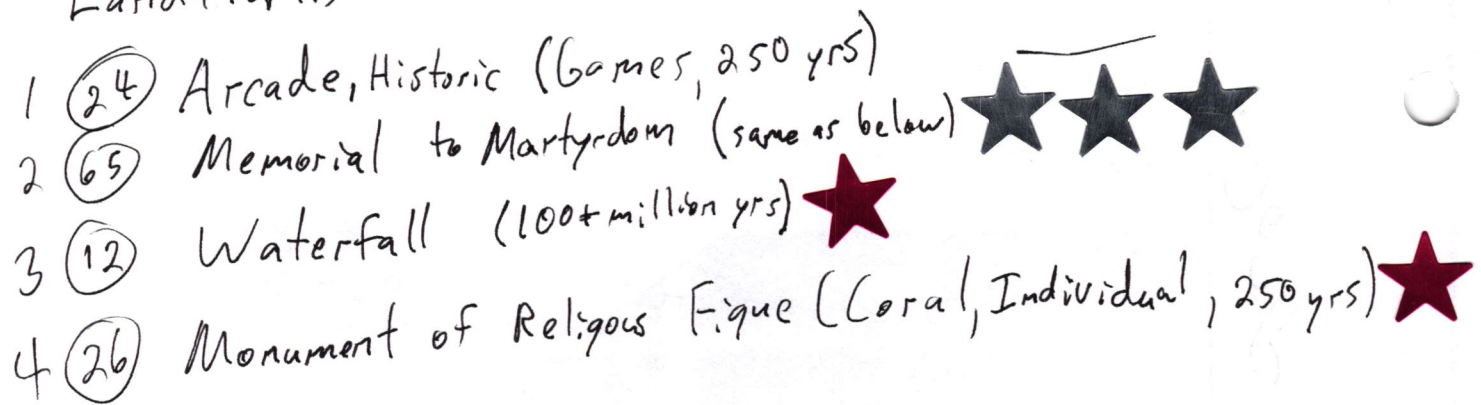 1 24 Arcade, Historic (Games, 250 yrs)
2 65 Memorial to Martyrdom (same as below)
3 12 Waterfall (100+ million yrs)
4 26 Monument of Religous Figue (Coral, Individual, 250 yrs)